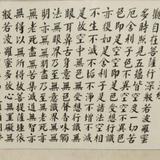 觀自在菩薩行深般若波羅
多時照見五蘊皆空度一切
厄舍利子色不異空空不異
色色即是空空即是色受想
亦復如是舍利子是諸法空
不生不滅不垢不淨不增不減
是故空中無色無受想行識
眼耳鼻舌身意無色聲香味觸
法無眼界乃至無意識界無
明亦無無明盡乃至無老死
無老死盡無苦集滅道無智亦
無得以無所得故菩提薩埵
般若波羅蜜多故心無罣礙